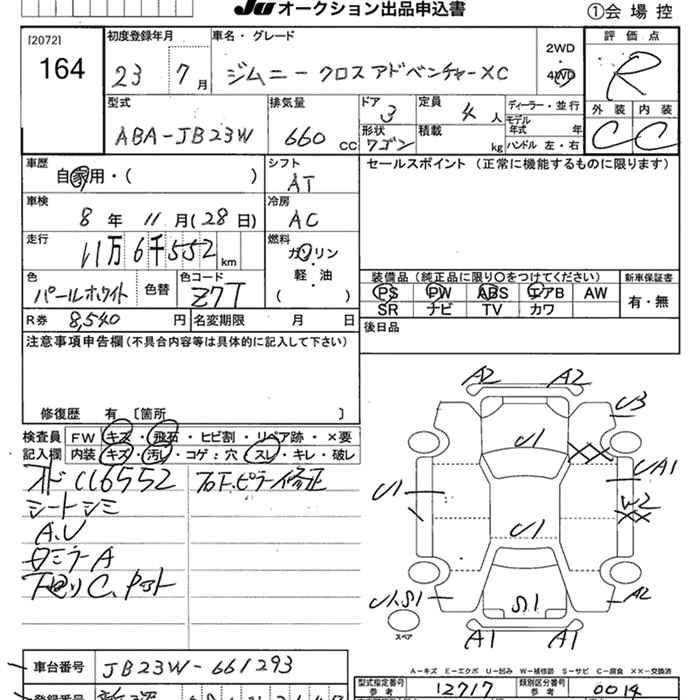 JU オークション出品申込書 ①会場控
[2072]
164
初度登録年月 車名・グレード 評価点
23 7月 ジムニー クロスアドベンチャーXC 2WD 4WD R
型式 排気量 ドア 定員 ディーラー・並行 外装 内装
ABA-JB23W 660 CC 3 4人 C C
形状 積載 モデル年式 年
ワゴン kg ハンドル 左・右
車歴 シフト セールスポイント (正常に機能するものに限ります)
自家用・( ) AT
車検 冷房
8年 11月(28日) AC
走行 燃料
11万6千552km ガソリン・軽・油 ( )
色 色替 色コード 装備品(純正品に限り○をつけてください) 新車保証書
パールホワイト Z7T PS PW ABS エアB AW 有・無
SR ナビ TV カワ
R券 8,540円 名変期限 月 日 後日品
注意事項申告欄(不具合内容等は具体的に記入して下さい)
修復歴 有 〔箇所 〕
検査員記入欄 FW キズ・飛石・ヒビ割・リペア跡・×要
内装 キズ・汚レ・コゲ:穴・スレ・キレ・破レ
シートシミ
A.U
A2 A2
U3
U1
UA1
U1
W2
U1
U1.S1 S.1 A2
スペア
A1 A1
車台番号 JB23W-661293
A-キズ E-エクボ U-凹み W-補修跡 S-サビ C-腐食 ××-交換済
型式指定番号 参考 12717 類別区分番号 参考 0014
登録番号